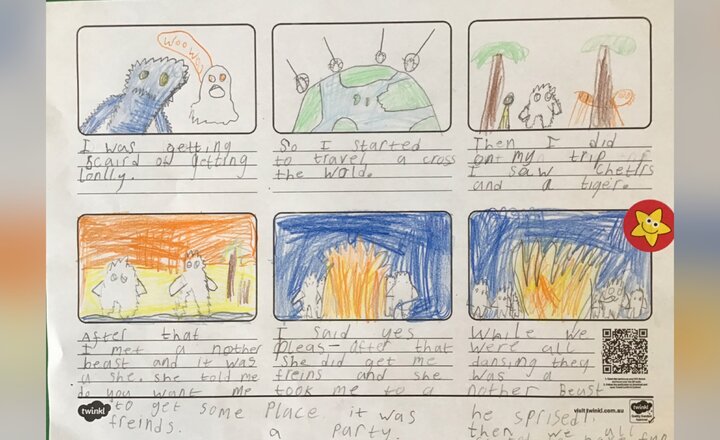 Woo Woo
I was getting
scaird of getting
lonlly.
So I started
to travel a cross
the world.
Then I did
on my trip
I saw
and a tiger.
After that
I met a nother
beast and it was
a she. she told me
do you want me
to get some
freinds.
I said yes
pleas after that
she did get me
freins and she
took me to a
place it was
a party.
While we
were all
dansing they
was a
nother Beast
he sprised!
then we all
twinkl
visit twinkl.com.au
twinkl